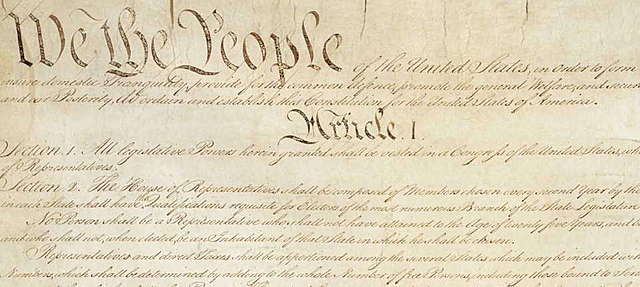 We the People of the United States, in Order to form
insure domestic Tranquility, provide for the common defence, promote the general Welfare, and secure
and our Posterity, do ordain and establish this Constitution for the United States of America.
Article. I.
Section. 1. All legislative Powers herein granted shall be vested in a Congress of the United States, which
of Representatives.
Section. 2. The House of Representatives shall be composed of Members chosen every second Year by the
in each State shall have the Qualifications requisite for Electors of the most numerous Branch of the State Legislature
No Person shall be a Representative who shall not have attained to the Age of twenty five Years, and
and who shall not, when elected, be an Inhabitant of that State in which he shall be chosen.
Representatives and direct Taxes shall be apportioned among the several States which may be included
Numbers, which shall be determined by adding to the whole Number of free Persons, including those bound to